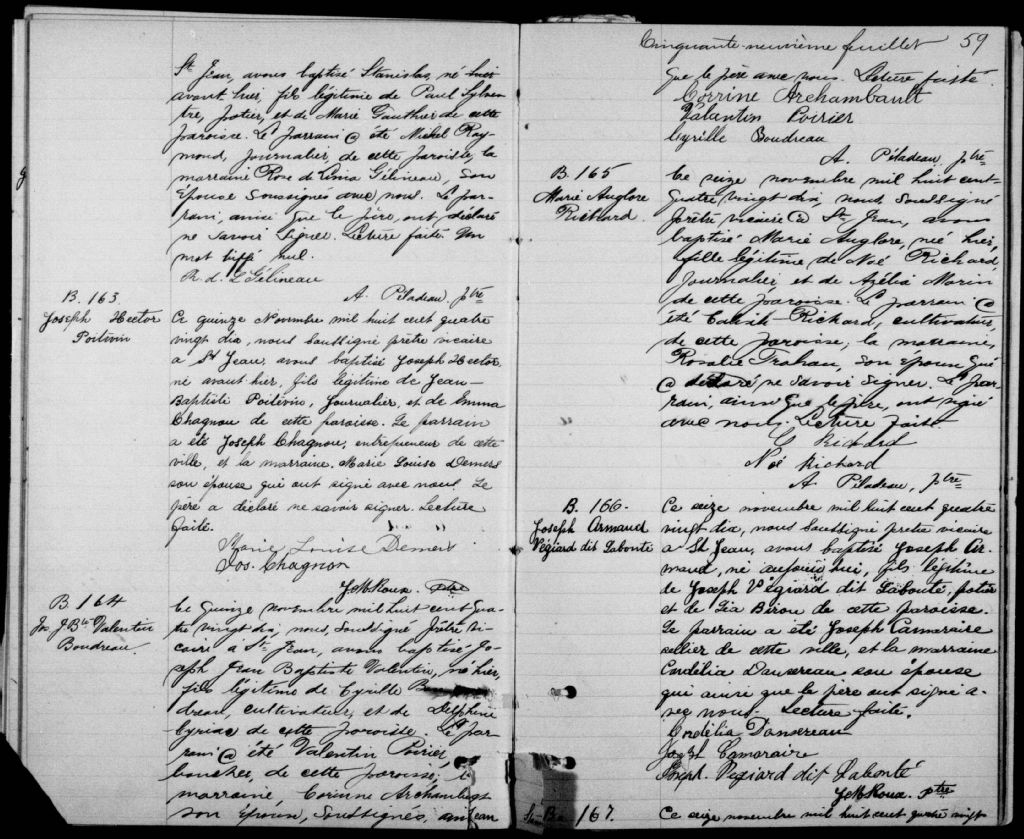 St Jean, avons baptisé Stanislas, né hier
avant hier, fils légitime de Paul Sylves-
tre, potier, et de Marie Gauthier de cette
paroisse. Le parrain @ été Michel Ray-
mond, journalier, de cette paroisse, la
marraine Rose de Lima Gélineau, son
épouse soussignés avec nous. Le par-
rain, ainsi que le père, ont déclaré
ne savoir signer. Lecture faite. Un
mot biffé nul.
R. d. L Gélineau
A. Piladeau, ptre
B. 163.
Joseph Hector
Poitevin
Ce quinze Novembre mil huit cent quatre
vingt dix, nous soussigné prêtre vicaire
a St Jean, avons baptisé Joseph Hector
né avant hier, fils légitime de Jean-
Baptiste Poitevin, Journalier, et de Emma
Chagnon de cette paroisse. Le parrain
a été Joseph Chagnon, entrepreneur de cette
ville, et la marraine, Marie Louise Demers
son épouse qui ont signé avec nous. Le
père a déclaré ne savoir signer. Lecture
faite.
Marie Louise Demers
Jos. Chagnon
ptre
B. 164
Jos J. Bte Valentin
Boudreau.
Ce quinze novembre mil huit cent qua-
tre vingt dix, nous, soussigné prêtre vi-
caire à St Jean, avons baptisé Jo-
seph Jean Baptiste Valentin, né hier,
fils légitime de Cyrille Bou-
dreau, cultivateur, et de Delphine
Cyriac de cette paroisse. Le par-
rain @ été Valentin Poirier,
boucher, de cette paroisse; la
marraine, Corinne Archambault
son épouse, soussignés, ainsi
Cinquante-neuvième feuillet 59
que le père avec nous. Lecture faite
Corrine Archambault
Valantin Poirier
Cyrille Boudreau
A. Piladeau, ptre
B. 165
Marie Anglore
Richard
Ce seize novembre mil huit cent-
quatre vingt dix, nous soussigné
prêtre vicaire @ St Jean, avons
baptisé Marie Anglore, née hier,
fille légitime de Noé Richard,
journalier et de Azélia Morin
de cette paroisse. Le parrain @
été Richard, cultivateur,
de cette paroisse; la marraine,
Rosalie Trahan, son épouse qui
@ déclaré ne savoir signer. Le par-
rain, ainsi que le père, ont signé
avec nous. Lecture faite
C Richard
Noé Richard
A. Piladeau, ptre
B. 166.
Joseph Armand
Végiard dit Labonté
Ce seize novembre mil huit cent quatre
vingt dix, nous soussigné prêtre vicaire
a St Jean, avons baptisé Joseph Ar-
mand, né aujourd'hui, fils légitime
de Joseph Végiard dit Labonté, potier
et de Lia Birou de cette paroisse.
Le parrain a été Joseph Camaraire
sellier de cette ville, et la marraine
Cordélia Dansereau son épouse
qui ainsi que le père ont signé a-
vec nous. Lecture faite.
Cordélia Dansereau
Joseph Camaraire
Joseph. Végiard dit Labonté
ptre
B. 167.
Ce seize novembre mil huit cent quatre vingt